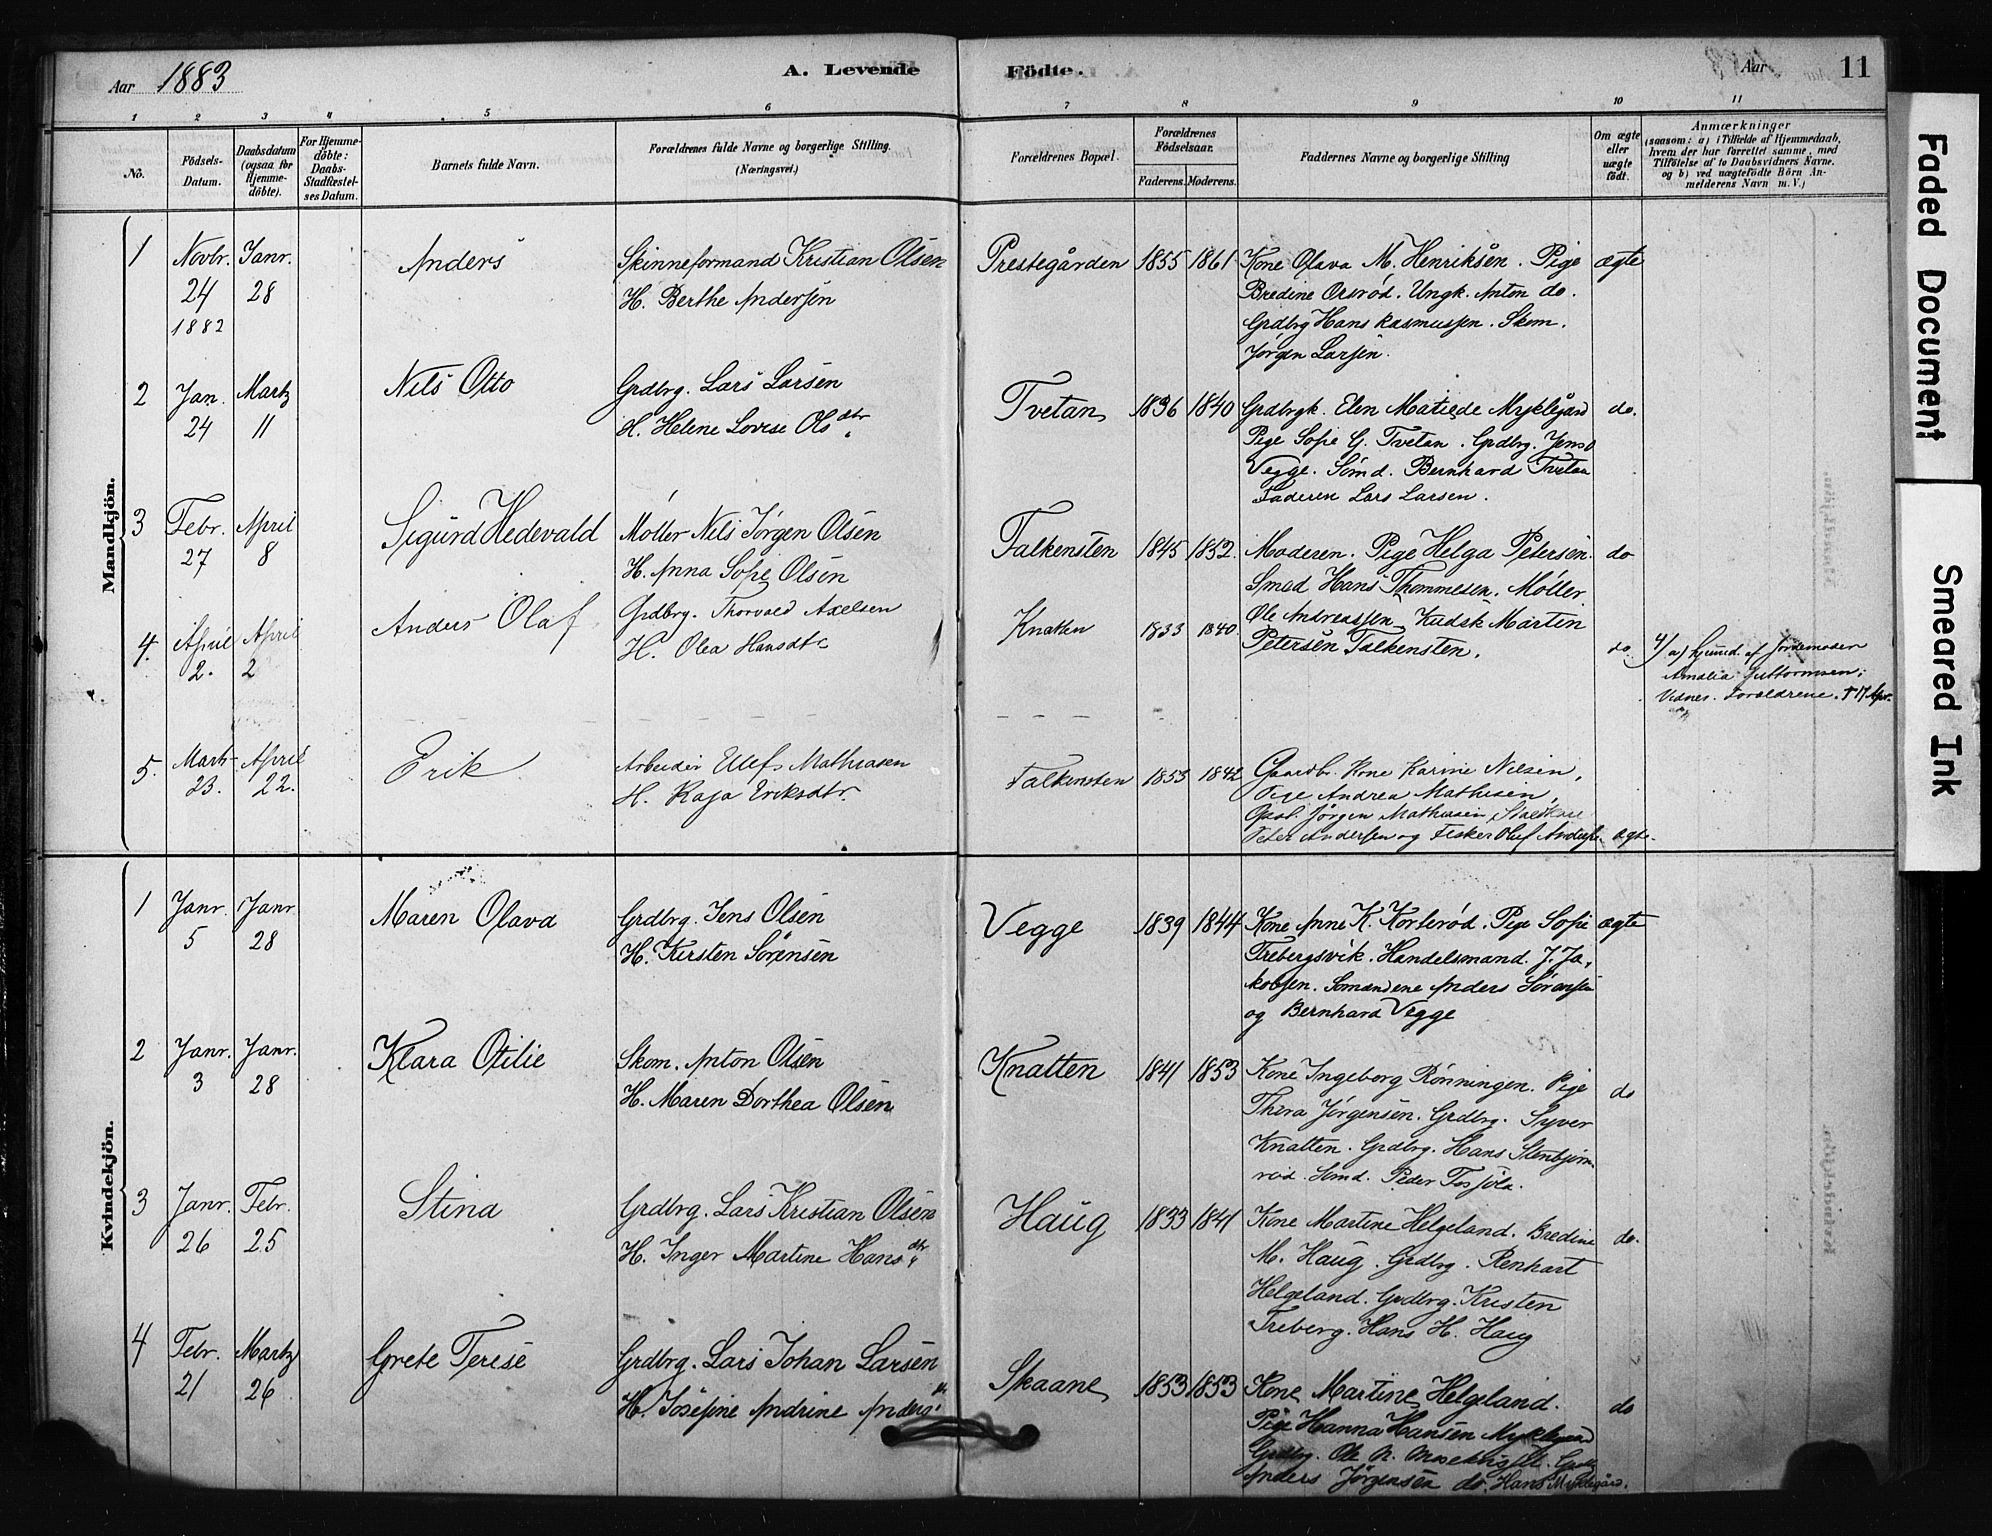 Aar 1883
A. Levende
Födte.
Aar
11
1 2 3 4 5 6 7 8 9 10 11
No.
Födsels-Datum.
Daabsdatum (ogsaa for Hjemmedöbte).
For Hjemmedöbte: Daabs-Stadfæstelses Datum.
Barnets fulde Navn.
Forældrenes fulde Navne og borgerlige Stilling.
(Næringsvei.)
Forældrenes Bopæl.
Forældrenes Födselsaar.
Faderens. Moderens.
Faddernes Navne og borgerlige Stilling
Om ægte eller uægte födt.
Anmærkninger
(saasom: a) i Tilfælde af Hjemmedaab,
hvem der har forrettet samme, med
Tilföielse af to Daabsvidners Navne.
og b) ved uægtefödte Börn An-
melderens Navn m. V.)
Mandkjön.
1 Novbr. 24 1882 Janr. 28 Anders
Skinneformand Kristian Olsen
H. Berthe Andersen
Prestegården 1855 1861
Kone Olava M. Henriksen. Pige
Bredine Orerød. Ungk. Anton do.
Grdbrg Hans Rasmussen. Skom.
Jørgen Larsen.
ægte
2 Jan. 24 Martz 11 Nils Otto
Grdbrg. Lars Larsen
H. Helene Lovise Olsdtr.
Tvetan 1836 1840
Grdbrgk. Elen Matilde Myklegård
Pige Sofie G. Tvetan. Grdbrg. Jens O
Vegge. Sömd. Bernhard Tvetan
Faderen Lars Larsen.
do.
3 Febr. 27 April 8 Sigurd Hedevald
Møller Nils Jørgen Olsen
H. Anna Sofie Olsen
Falkensten 1845 1852.
Moderen. Pige Helga Petersen.
Smed Hans Thommesen. Møller
Ole Andreassen. Kudsk Martin
Petersen Falkensten.
do
4. April 2. April 2 Anders Olaf
Grdbrg. Thorvald Axelsen
H. Olea Hansdtr
Knatten 1833 1840.
do.
4/ a) hjemd. af Jordemoder
Amalia Guttormsen;
Vidner. Forældrene. † 17 Apr.
5. Marts 23. April 22. Erik
Arbeider Ulef Mathiasen
H. Kaja Eriksdtr.
Falkensten 1853 1842
Gaardbr. Kone Karine Nilsen,
Pige Andrea Mathisen,
Jørgen Mathiasen,
Peter Andersen og Fisker Oluf Anders.
ægte.
Kvindekjön.
1 Janr. 5 Janr 28 Maren Olava
Grdbrg. Jens Olsen
H. Kirsten Sørensen
Vegge 1839 1844
Kone Anne K. Korterød. Pige Sofie
Trebergsvik. Handelsmand J. Ja-
kobsen. Sömændene Anders Sørensen
og Bernhard Vegge
ægte
2 Janr. 3 Janr. 28 Klara Otilie
Skom. Anton Olsen
H. Maren Dorthea Olsen
Knatten 1841 1853
Kone Ingeborg Rønningen. Pige
Thora Jørgensen. Grdbrg. Syver
Knatten. Grdbrg. Hans Stenbjørn-
rød. Sömd. Peder
do
3 Janr. 26 Febr. 25 Stina
Grdbrg. Lars Kristian Olsen
H. Inger Martine Hansdtr.
Haug 1833 1841
Kone Martine Helgeland. Bredine
M. Haug. Grdbrg. Renhart
Helgeland. Grdbrg. Kristen
Treberg. Hans H. Haug
do.
4 Febr. 21 Martz 26 Grete Terese
Grdbrg. Lars Johan Larsen
H. Josefine Andrine Anders
Skaane 1853 1853
Kone Martine Helgeland.
Pige Hanna Hansen Myklegård
Grdbrg. Ole N.
Anders Jørgensen do. Hans Myklegård.
do
Faded Document
Smeared Ink